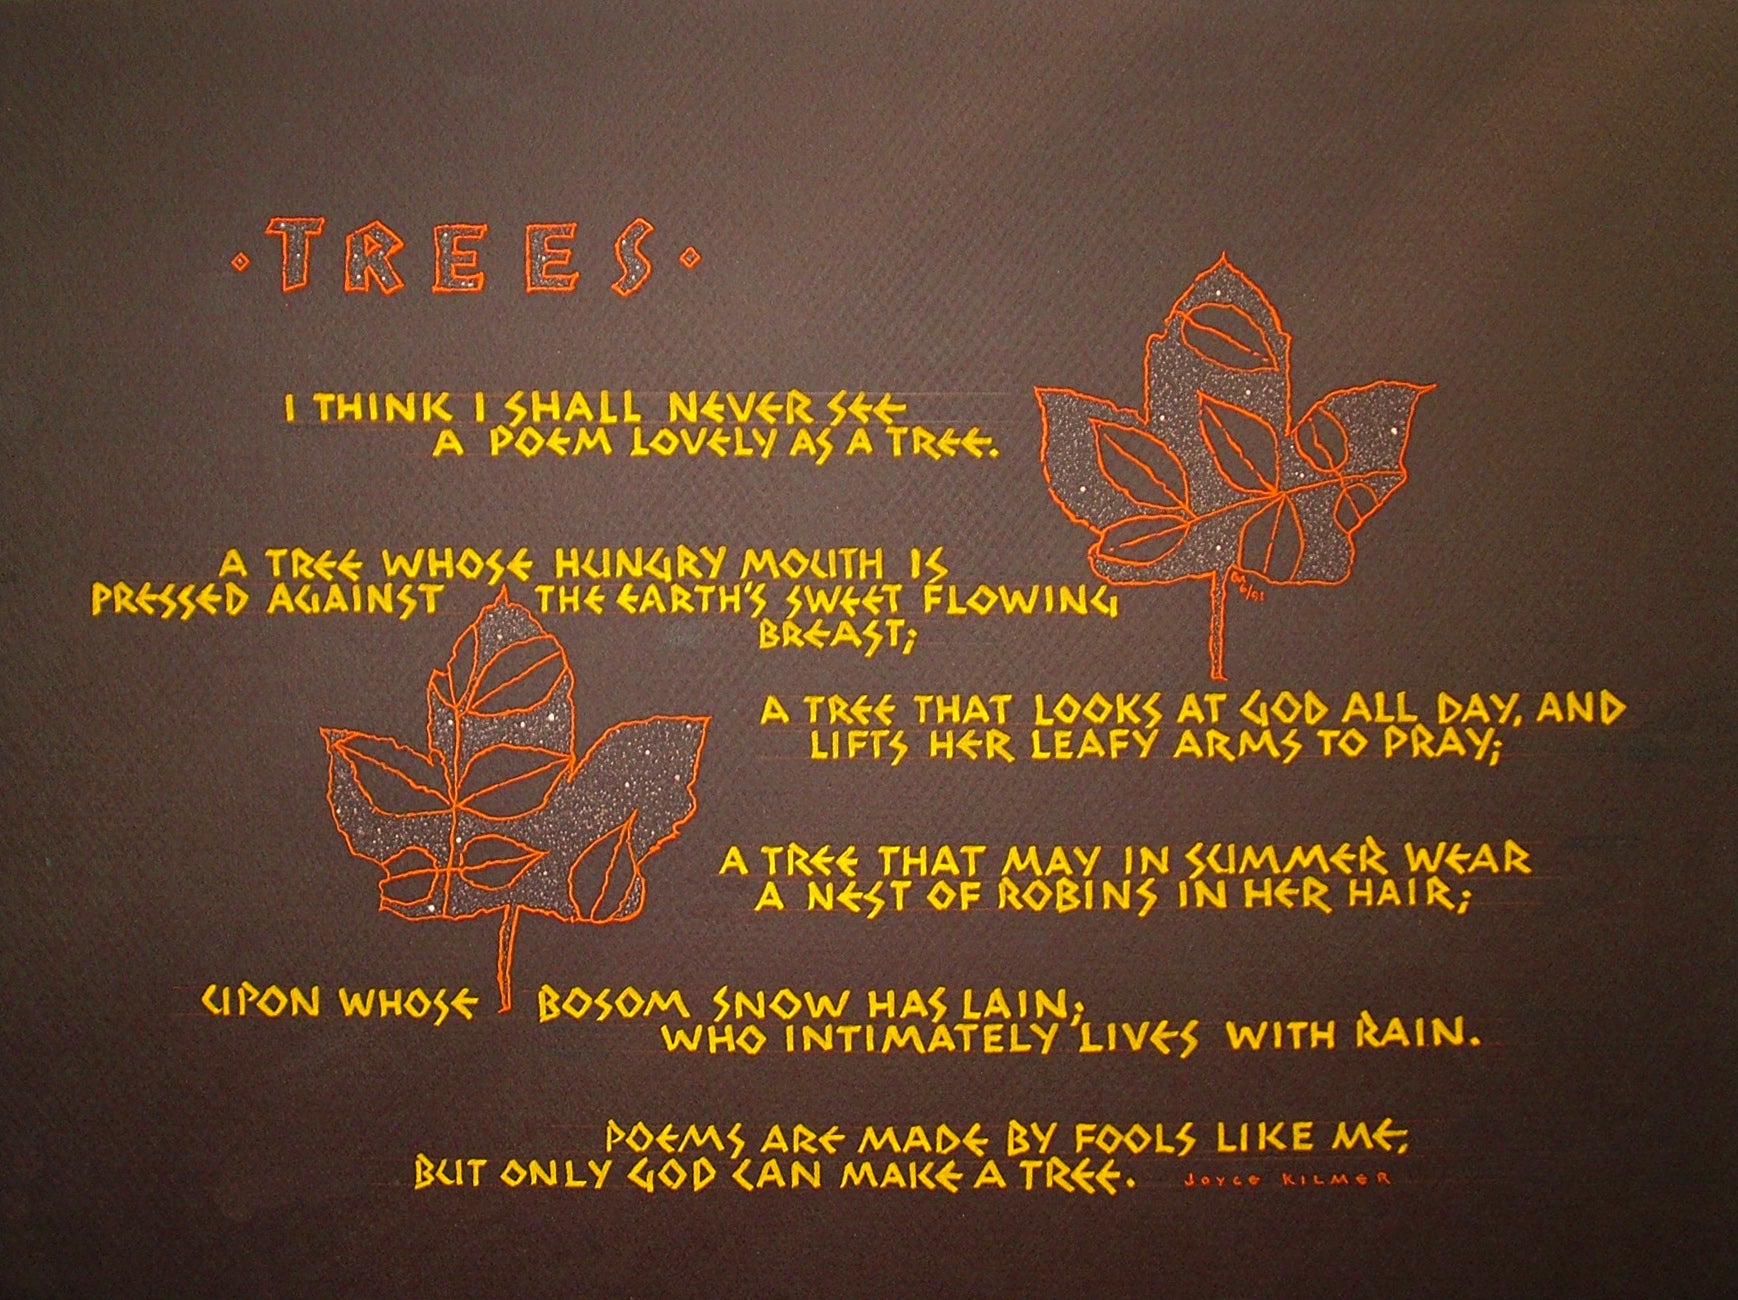 · TREES ·
I THINK I SHALL NEVER SEE
A POEM LOVELY AS A TREE.
A TREE WHOSE HUNGRY MOUTH IS
PRESSED AGAINST THE EARTH'S SWEET FLOWING
BREAST;
A TREE THAT LOOKS AT GOD ALL DAY, AND
LIFTS HER LEAFY ARMS TO PRAY;
A TREE THAT MAY IN SUMMER WEAR
A NEST OF ROBINS IN HER HAIR;
UPON WHOSE BOSOM SNOW HAS LAIN;
WHO INTIMATELY LIVES WITH RAIN.
POEMS ARE MADE BY FOOLS LIKE ME,
BUT ONLY GOD CAN MAKE A TREE.
JOYCE KILMER